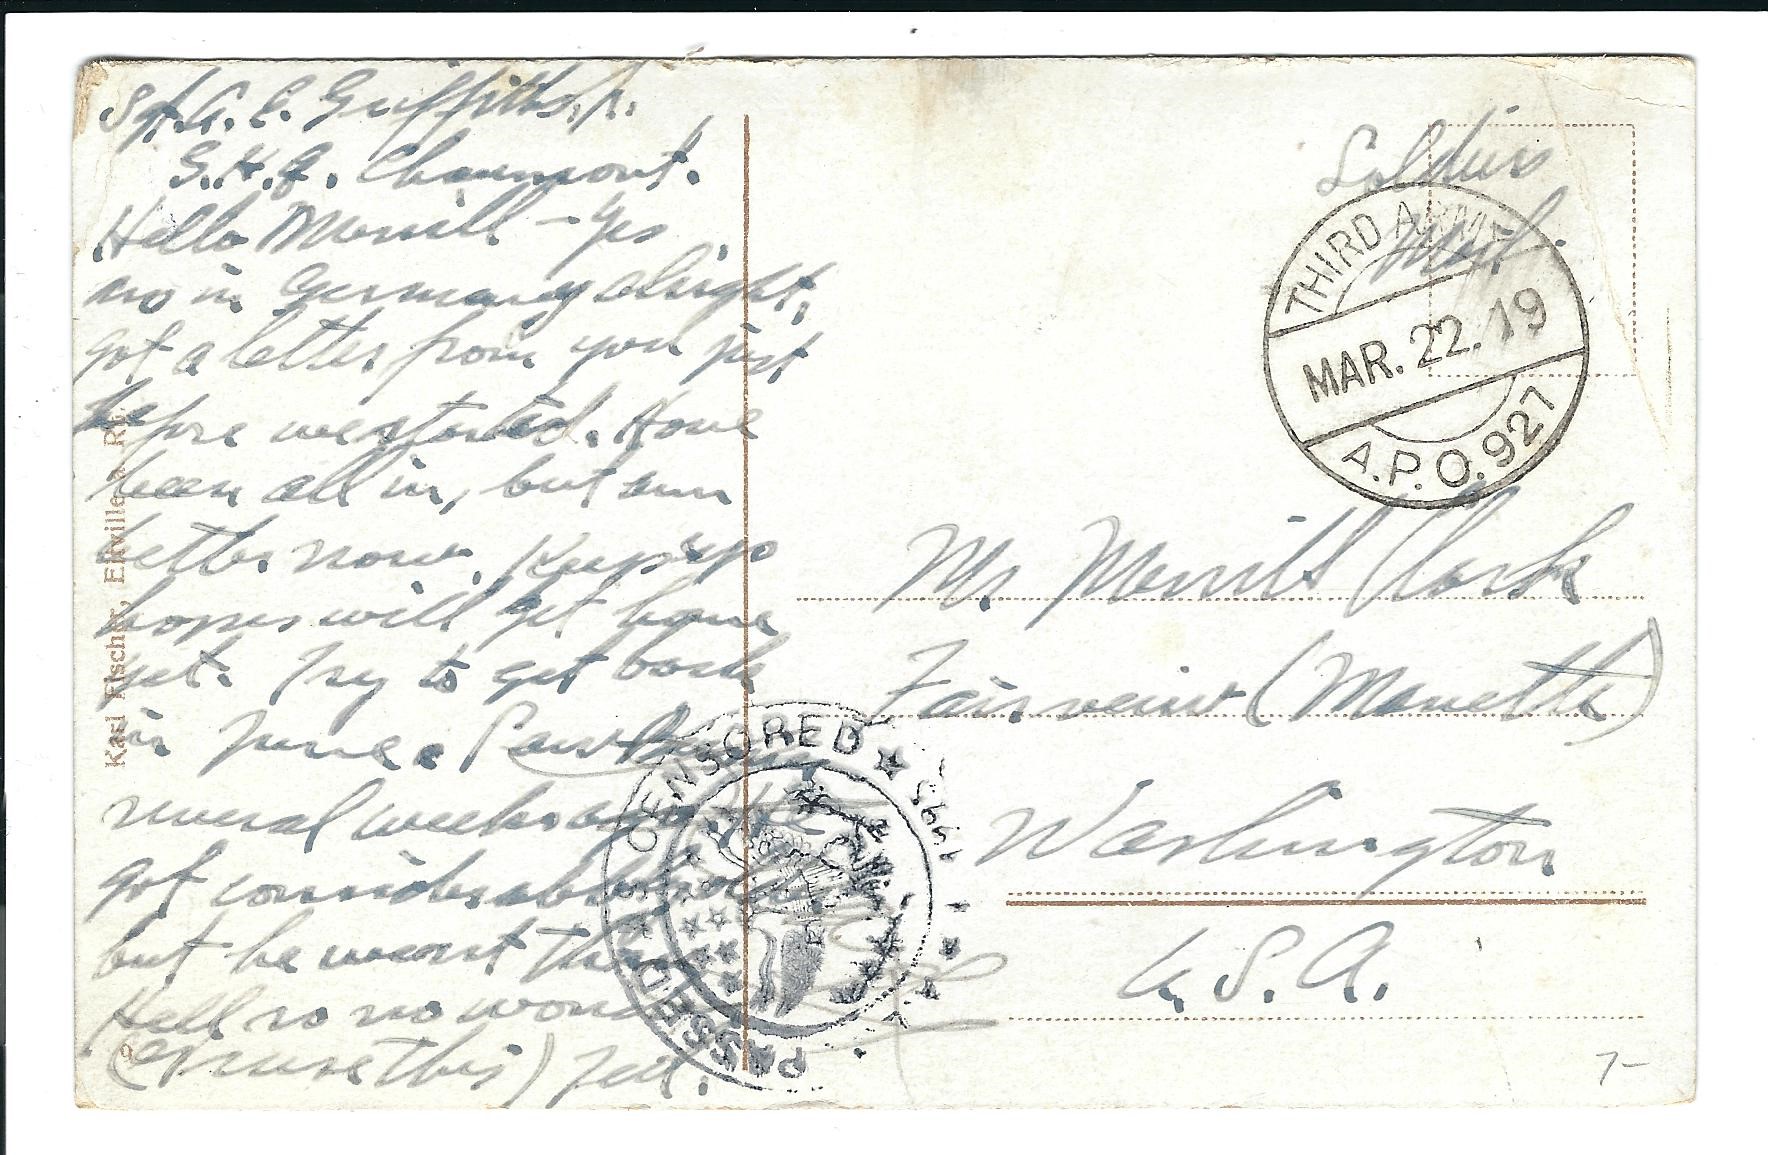 Sgt. A. E. Griffiths Jr.
G.H.Q. Chaumont.
Hello Merrill - Yes
in Germany alright,
got a letter from you just
before we started. Have
been all in, but am
better now. Keep up
hopes will get home
yet. Try to get back
in June. Saw
several weeks ago. He
got considerable
but he wasn't
Hell so no
(Excuse this) Ted.
Karl Fischer, Eltville a. Rh.
Soldiers
Mail.
THIRD ARMY
MAR. 22. 19
A.P.O. 927
Mr Merrill Clark
Fairview (Manette)
Washington
U.S.A.
PASSED AS CENSORED
7-